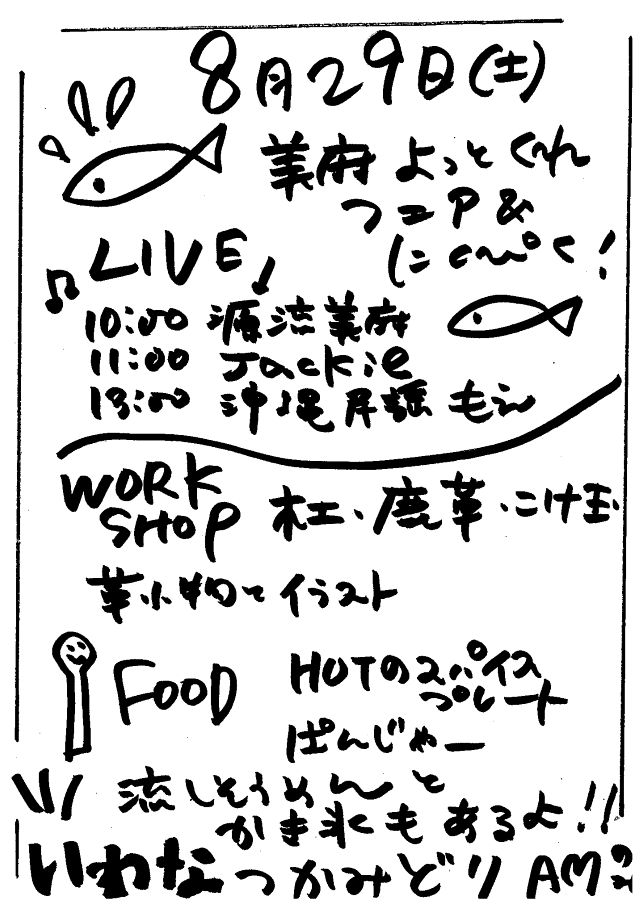 8月29日(土)
美麻 よっとくれ
つエP&
にくぺく!
LIVE
10:00 源流美麻
11:00 Jackie
13:00 沖縄民謡 もえ
WORK
SHOP 木工、鹿革、こけ玉
革小物と イラスト
FOOD HOTのスパイス
プレート
ぱんじゃー
流しそうめんと
かき氷もあるよ!!
いわなつかみどり AM